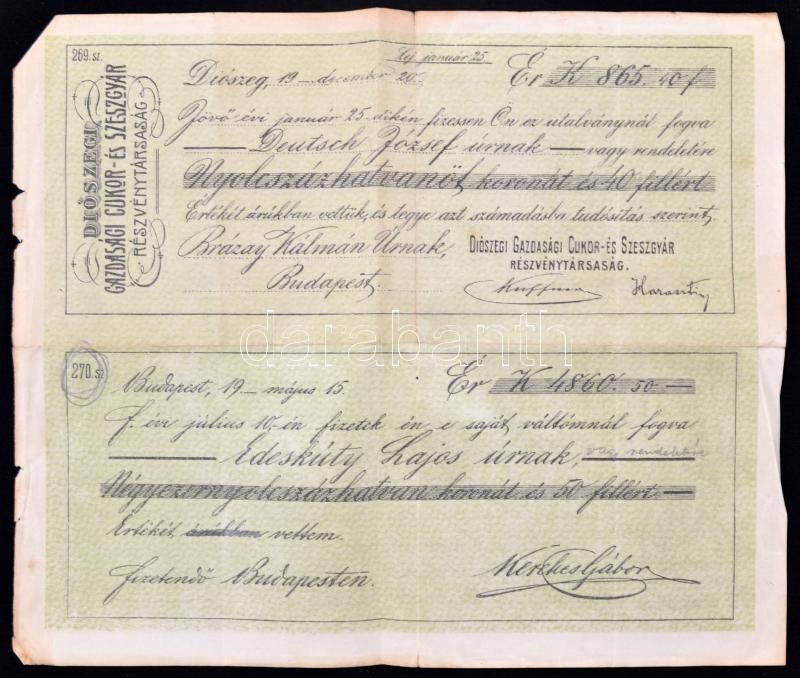 269. sz.
DIÓSZEGI
GAZDASÁGI CUKOR- ÉS SZESZGYÁR
RÉSZVÉNYTÁRSASÁG
Lej január 25.
Diószeg, 19 — december 20.
Ér K 865. 40 f
Jövő évi január 25.dikén fizessen Ön ez utalványnál fogva
Deutsch József úrnak — vagy rendeletére
Nyolcszázhatvanöt koronát és 40 fillért
Értékét árúkban vettük, és tegye azt számadásba tudósitás szerint,
Brázay Kálmán Úrnak,
Budapest.
DIÓSZEGI GAZDASÁGI CUKOR- ÉS SZESZGYÁR
RÉSZVÉNYTÁRSASÁG.
Kuffner
darabanth
270. sz.
Budapest, 19 — május 15.
Ér K 4860. 50 —
f. évi július 10.-én fizetek én e saját váltómnál fogva
Édeskúty Lajos úrnak, vagy rendeletére
Négyezernyolcszázhatvan koronát és 50 fillért
Értékét árúkban vettem.
fizetendő Budapesten.
Kerekes Gábor